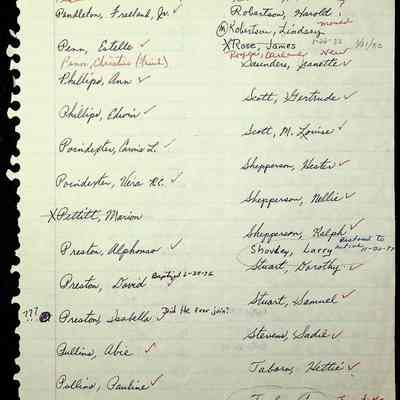 Pendleton, Freeland, Jr. ✓
Penn, Estelle ✓
Penn, Christine
Phillips, Ann ✓
Phillips, Edwin ✓
Poindexter, Annie L. ✓
Poindexter, Vera R.C. ✓
X Pettitt, Marion
Preston, Alphonso ✓
Preston, David Baptized
??? Preston, Isabella ✓ Did He ever join?
Pullins, Abie ✓
Pullins, Pauline ✓
Robertson, Harold
(M) Robertson, Lindsay moved
X Rose, James
New
Saunders, Jeanette ✓
Scott, Gertrude ✓
Scott, M. Louise ✓
Shepperson, Hester ✓
Shepperson, Nellie ✓
Shepperson, Ralph ✓
Shovley, Larry Restored to active
Stuart, Dorothy ✓
Stuart, Samuel ✓
Stevens, Sadie ✓
Tabors, Hettie ✓